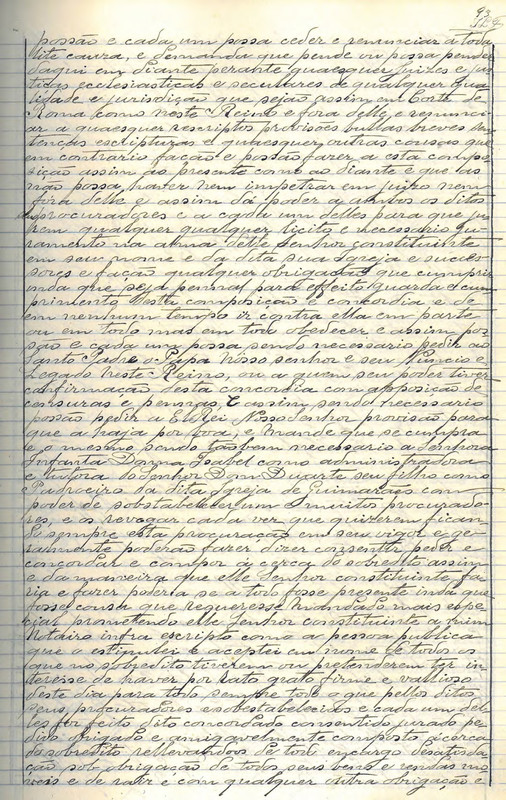 93
possão e cada um possa ceder e renunciar a toda
lite cauza, e demanda que pende ou possa pender
daqui em diante perante quaesquer juizes e jus
tiças ecclesiasticas e seculares de qualquer qua
lidade e jurisdição que sejão assim em Corte de
Roma como neste Reino e fora delle, e renunci
ar a quaesquer rescriptos provisões bullas breves sen
tenças escripturas e quaesquer outras cousas que
em contrario fação e possão fazer a esta compo
zição assim ao presente como ao diante e que as
não possa haver nem impetrar em juizo nem
fóra delle e assim dá poder a ambos os ditos
procuradores e a cada um delles para que ju
rem qualquer qualquer licito e necessario ju
ramento na alma delle Senhor constituinte
em seu nome e da dita sua Igreja e succes
sores e fação qualquer obrigação que cumprir
inda que seja pennal para effeito guarda e cum
primento desta composição e concordia e de
em nenhum tempo ir contra ella em parte
ou em todo mas em todo obedecer e assim pos
são e cada um possa sendo necessario pedir ao
Santo Padre o Papa Nosso senhor e seu Nuncio e
Legado neste Reino, ou a quem seu poder tiver
confirmação desta concordia com apposição de
censuras e pennas, E assim sendo necessario
possão pedir a El Rei Nosso Senhor provisão para
que a haja por boa, e mande que se cumpra
e o mesmo sendo tãobem necessario a Senhora
Infanta Donna Isabel como administradora
e tutora do Senhor Dom Duarte seu filho como
Padroeiro da dita Igreja de Guimarães com
poder de sobstabelecer um e muitos procurado
res, e os revogar cada vez que quizerem fican
do sempre esta procuração em seu vigor e ge
ralmente poderão fazer dizer consentir pedir e
concordar e compor á cerca do sobredito assim
e da maneira que elle Senhor constituinte fa
ria e fazer poderia se a todo fosse presente inda que
fosse cousa que requeresse mandado mais espe
cial promettendo elle Senhor constituinte a mim
Notairo infra escripto como a pessoa publica
que o estipulei e aceptei em nome de todos os
que no sobredito tiverem ou pretenderem ter in
teresse de haver por rato grato firme e valioso
deste dia para todo sempre todo o que pellos ditos
seus procuradores e sobstabelecidos e cada um del
les for feito dito concordado consentido jurado pe
dido obrigado e amigavelmente composto ácerca
do sobredito rellevandoos de todo encargo desatisda
ção sob obrigação de todos seus bens e rendas mo
veis e de raiz e com qualquer outra obrigação e